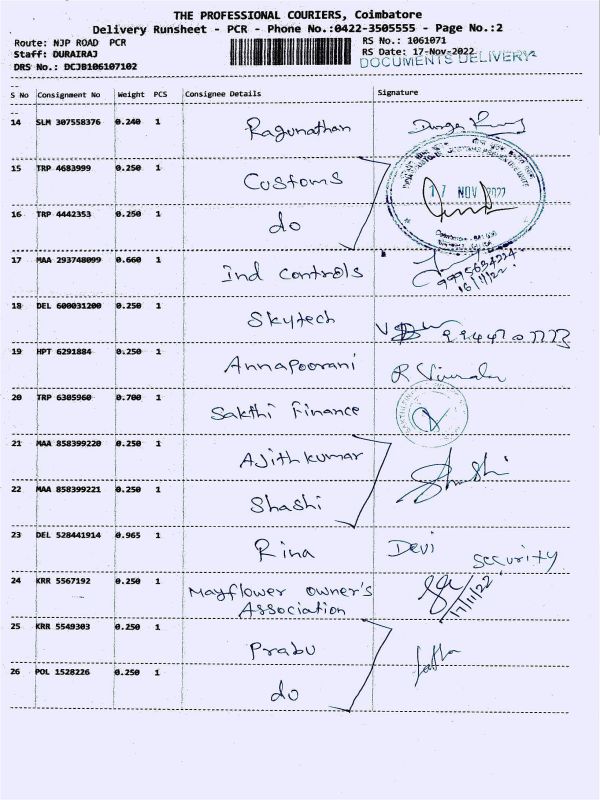 THE PROFESSIONAL COURIERS, Coimbatore
Delivery Runsheet - PCR - Phone No.:0422-3505555 - Page No.:2
Route: NJP ROAD PCR
RS No.: 1061071
Staff: DURAIRAJ
RS Date: 17-Nov-2022
DRS No.: DCJB106107102
DOCUMENTS DELIVERY
S No Consignment No Weight PCS Consignee Details Signature
14 SLM 307558376 0.240 1 Ragunathan
15 TRP 4683999 0.250 1 Customs
17 NOV 2022
16 TRP 4442353 0.250 1 do
17 MAA 293748099 0.660 1 Ind Controls
16/11/22
18 DEL 600031200 0.250 1 Skytech
19 HPT 6291884 0.250 1 Annapoorani
20 TRP 6305960 0.700 1 Sakthi Finance
21 MAA 858399220 0.250 1 Ajithkumar
Shashi
22 MAA 858399221 0.250 1 Shashi
23 DEL 528441914 0.965 1 Rina Devi
Security
24 KRR 5567192 0.250 1 Mayflower owner's
Association
17/11/22
25 KRR 5549303 0.250 1 Prabu
26 POL 1528226 0.250 1 do